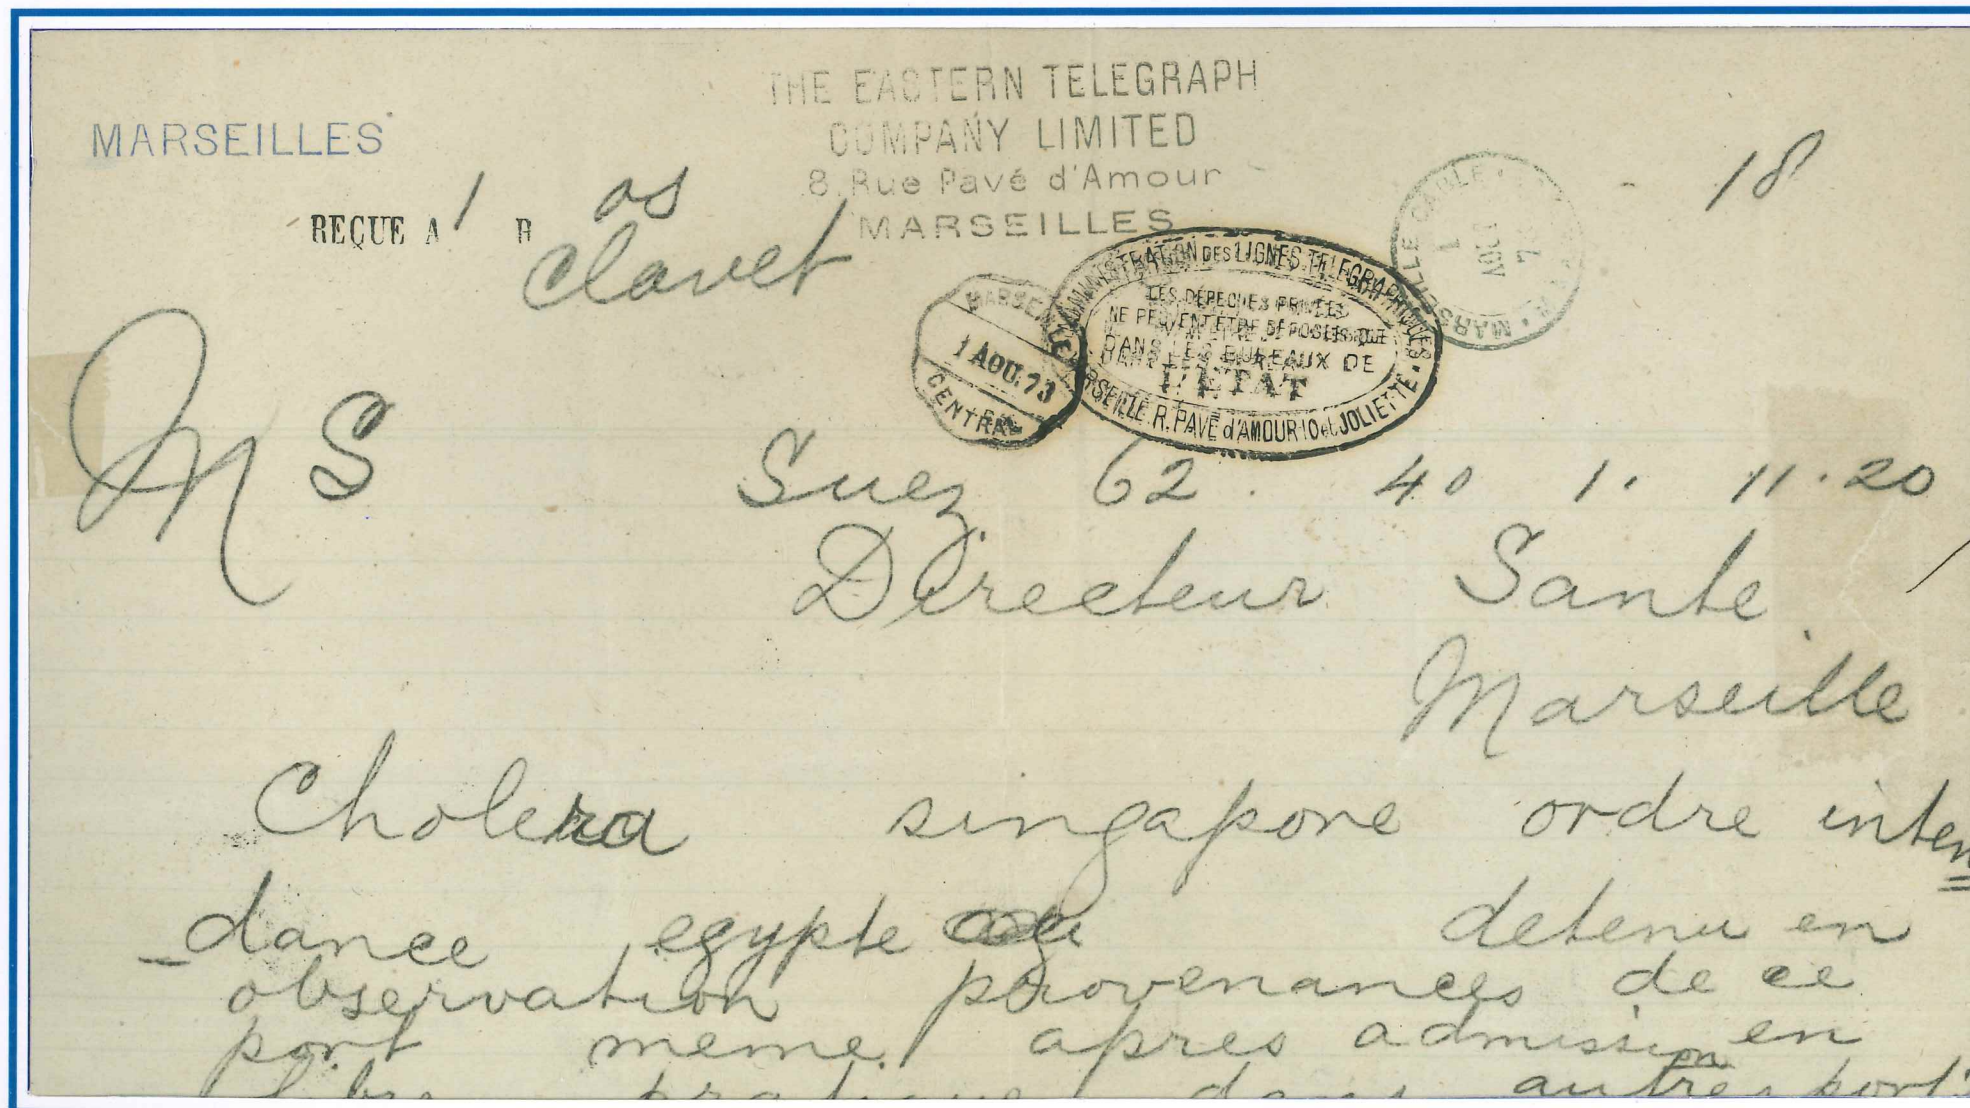 THE EASTERN TELEGRAPH
COMPANY LIMITED
8, Rue Pavé d'Amour
MARSEILLES
MARSEILLES
18
REÇUE A 1 H 05
Clavet
MARSEILLE CABLE
MARSEILLE
1 AOU. 73
CENTRAL
ADMINISTRATION DES LIGNES TELEGRAPHIQUES
LES DEPECHES PRIVEES
NE PEUVENT ETRE DEPOSEES QUE
DANS LES BUREAUX DE
L'ETAT
MARSEILLE. R. PAVÉ d'AMOUR 10 et JOLIETTE
MS Suez 62. 40 1. 11.20
Directeur Sante
Marseille
Cholera singapore ordre inten
dance egypte detenu en
observation provenances de ce
port meme apres admission en
libre pratique dans autres port